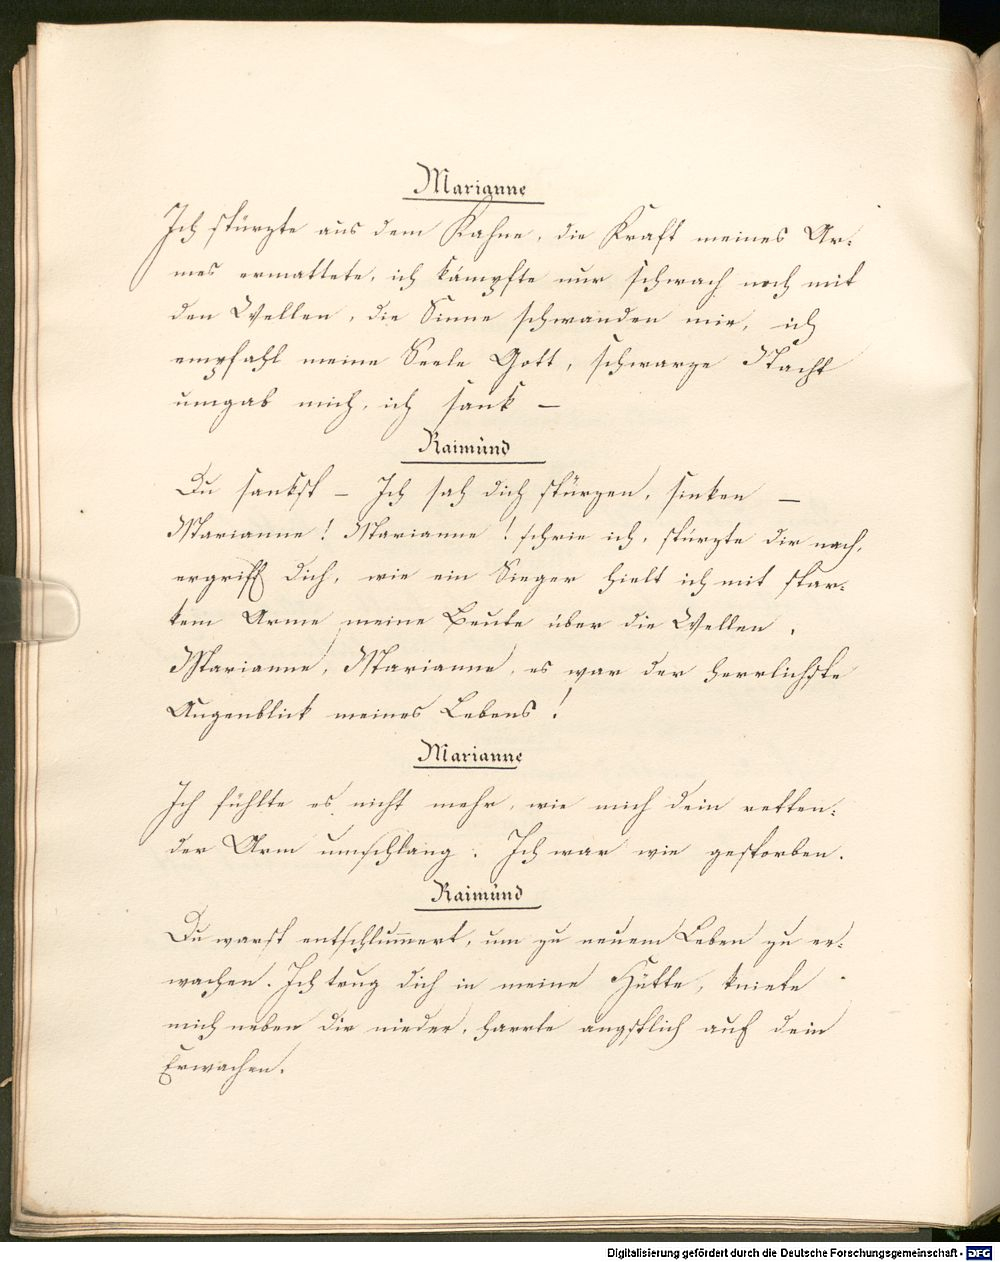 Marianne
Ich stürzte aus dem Kahne, die Kraft meines Ar-
mes ermattete, ich kämpfte nur schwach noch mit
den Wellen, die Sinne schwanden mir, ich
empfahl meine Seele Gott, schwarze Nacht
umgab mich, ich sank —
Raimund
Du sankst — Ich sah dich stürzen, sinken —
Marianne! Marianne! schrie ich, stürzte dir nach,
ergriff dich, wie ein Sieger hielt ich mit star-
kem Arme meine Beute über die Wellen.
Marianne, Marianne, es war der herrlichste
Augenblick meines Lebens!
Marianne
Ich fühlte es nicht mehr, wie mich dein retten-
der Arm umschlang. Ich war wie gestorben.
Raimund
Du warst entschlum̄ert, um zu neuem Leben zu er-
wachen. Ich trug dich in meine Hütte, kniete
mich neben dir nieder, harrte angstlich auf dein
Erwachen.
Digitalisierung gefördert durch die Deutsche Forschungsgemeinschaft - DFG